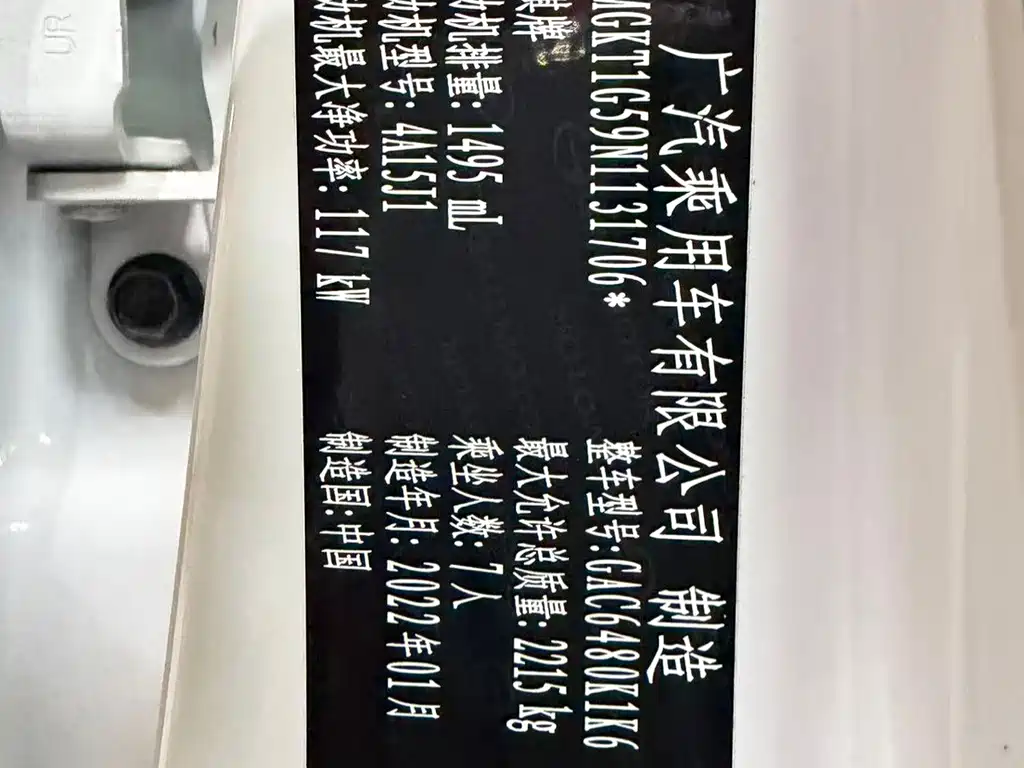 广汽乘用车有限公司 制造
MGKT1G59N1131706* 整车型号:GAC6480K1K6
祺牌 最大允许总质量: 2215 kg
动机排量: 1495 mL 乘坐人数: 7人
动机型号: 4A15J1 制造年月: 2022年01月
动机最大净功率: 117 kW 制造国: 中国
UR